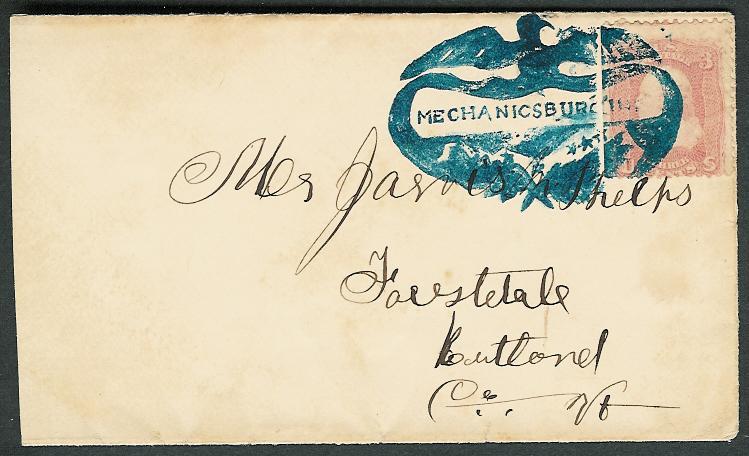 MECHANICSBURG
Mr Jarvis Phelps
Forestdale
Rutland
Co. Vt